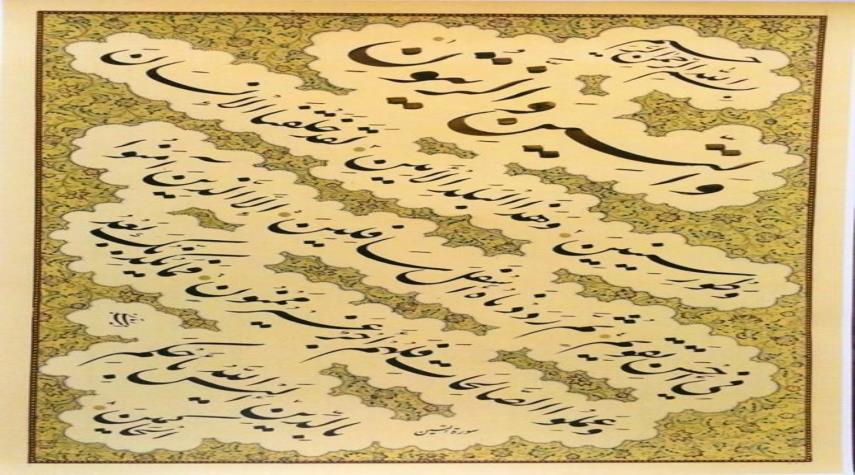 بسم الله الرحمن الرحیم
والتین والزیتون
وطور سینین وهذا البلد الامین لقد خلقنا الانسان
فی احسن تقویم ثم رددناه اسفل سافلین الا الذین آمنوا
وعملوا الصالحات فلهم اجر غیر ممنون فما یکذبک بعد
بالدین الیس الله باحکم
الحاکمین
سورة التین